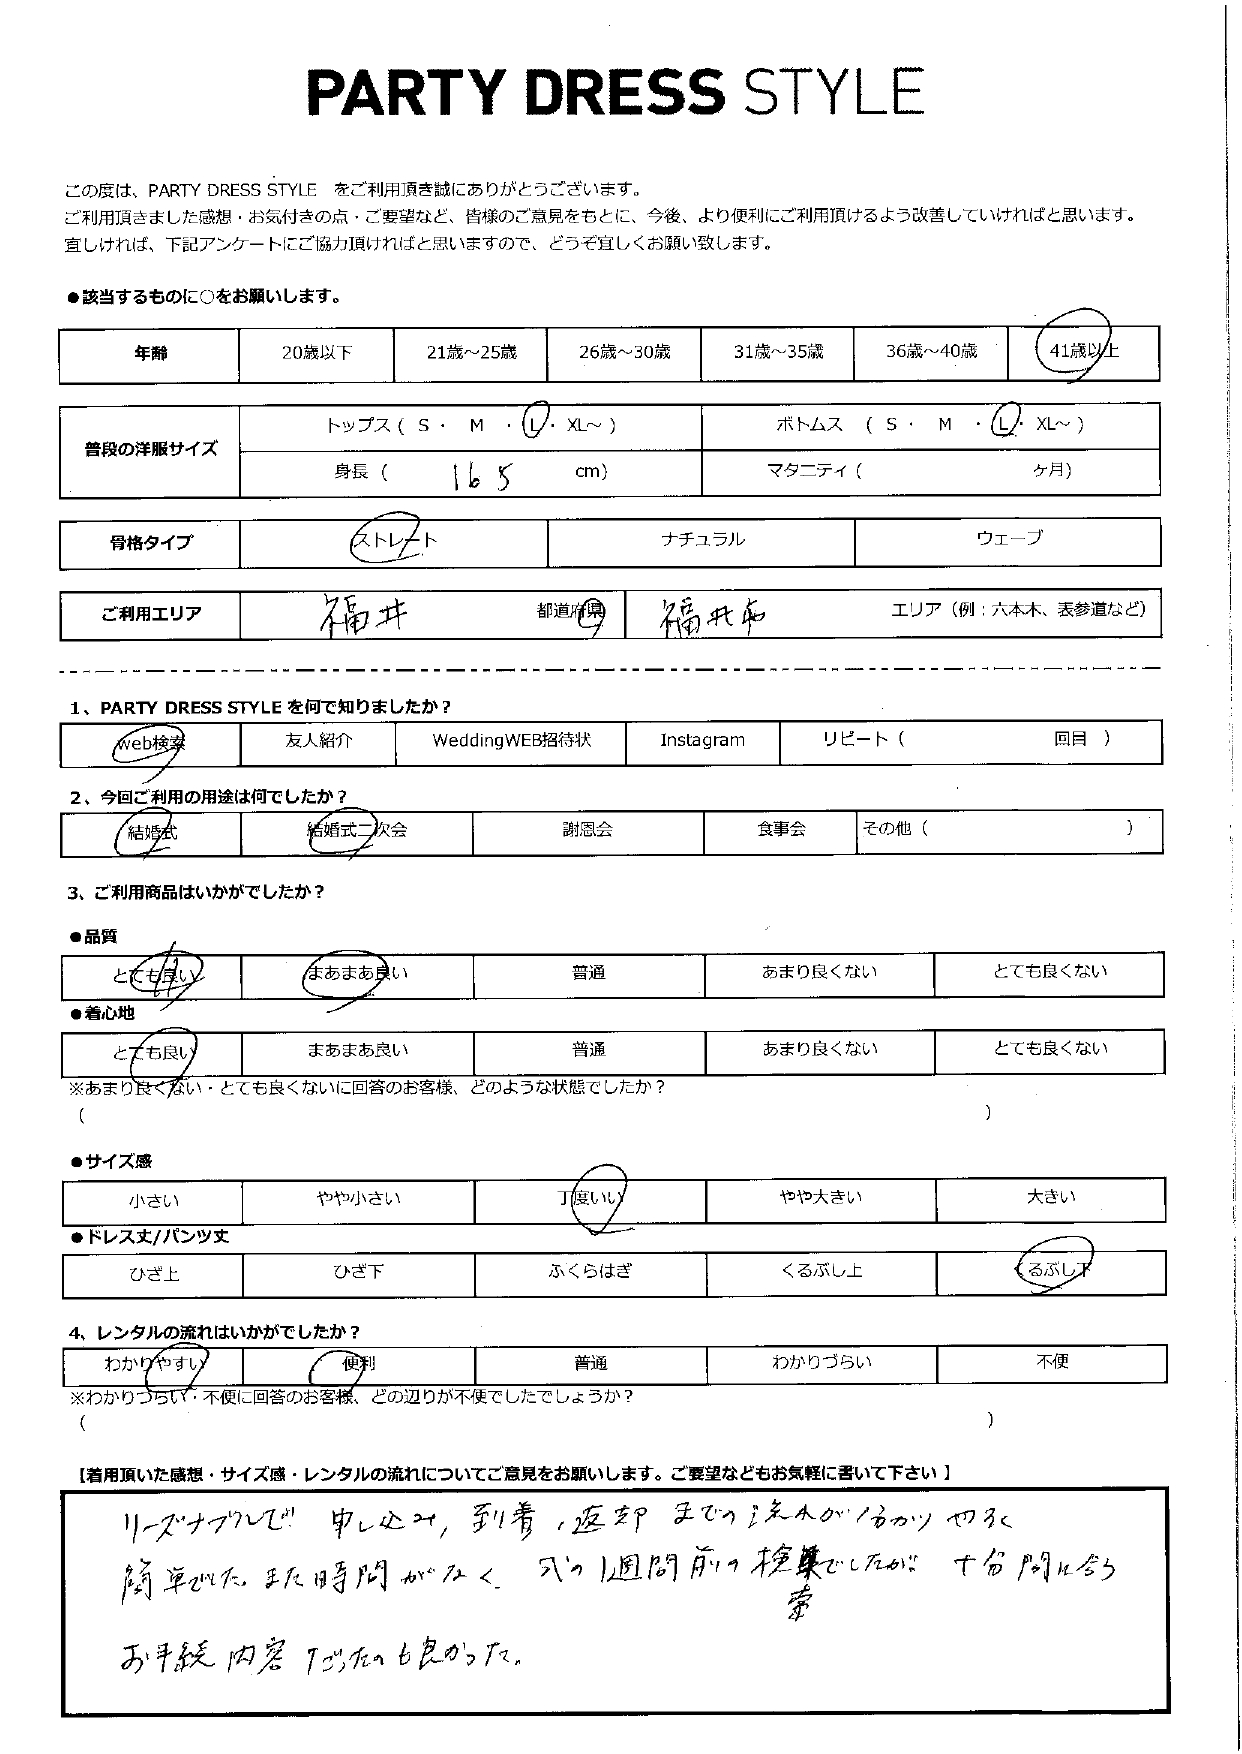 PARTY DRESS STYLE
この度は、PARTY DRESS STYLE をご利用頂き誠にありがとうございます。
ご利用頂きました感想・お気付きの点・ご要望など、皆様のご意見をもとに、今後、より便利にご利用頂けるよう改善していければと思います。
宜しければ、下記アンケートにご協力頂ければと思いますので、どうぞ宜しくお願い致します。
●該当するものに○をお願いします。
年齢 20歳以下 21歳～25歳 26歳～30歳 31歳～35歳 36歳～40歳 41歳以上
普段の洋服サイズ トップス ( S ・ M ・ L ・ XL～ ) ボトムス ( S ・ M ・ L ・ XL～ )
身長 ( 165 cm) マタニティ ( ケ月)
骨格タイプ ストレート ナチュラル ウェーブ
ご利用エリア 福井 都道府県 福井市 エリア（例：六本木、表参道など）
1、PARTY DRESS STYLE を何で知りましたか？
web検索 友人紹介 WeddingWEB招待状 Instagram リピート（ 回目 ）
2、今回ご利用の用途は何でしたか？
結婚式 結婚式二次会 謝恩会 食事会 その他（ ）
3、ご利用商品はいかがでしたか？
●品質
とても良い まあまあ良い 普通 あまり良くない とても良くない
●着心地
とても良い まあまあ良い 普通 あまり良くない とても良くない
※あまり良くない・とても良くないに回答のお客様、どのような状態でしたか？
（ ）
●サイズ感
小さい やや小さい 丁度いい やや大きい 大きい
●ドレス丈/パンツ丈
ひざ上 ひざ下 ふくらはぎ くるぶし上 くるぶし下
4、レンタルの流れはいかがでしたか？
わかりやすい 便利 普通 わかりづらい 不便
※わかりづらい・不便に回答のお客様、どの辺りが不便でしたでしょうか？
（ ）
【着用頂いた感想・サイズ感・レンタルの流れについてご意見をお願いします。ご要望などもお気軽に書いて下さい】
リーズナブルで 申し込み, 到着, 返却 までの 流れが 分かりやすく
簡単でした。また時間がなく、式の1週間前の検索でしたが 十分間に合う
お手続 内容 だったのも良かった。